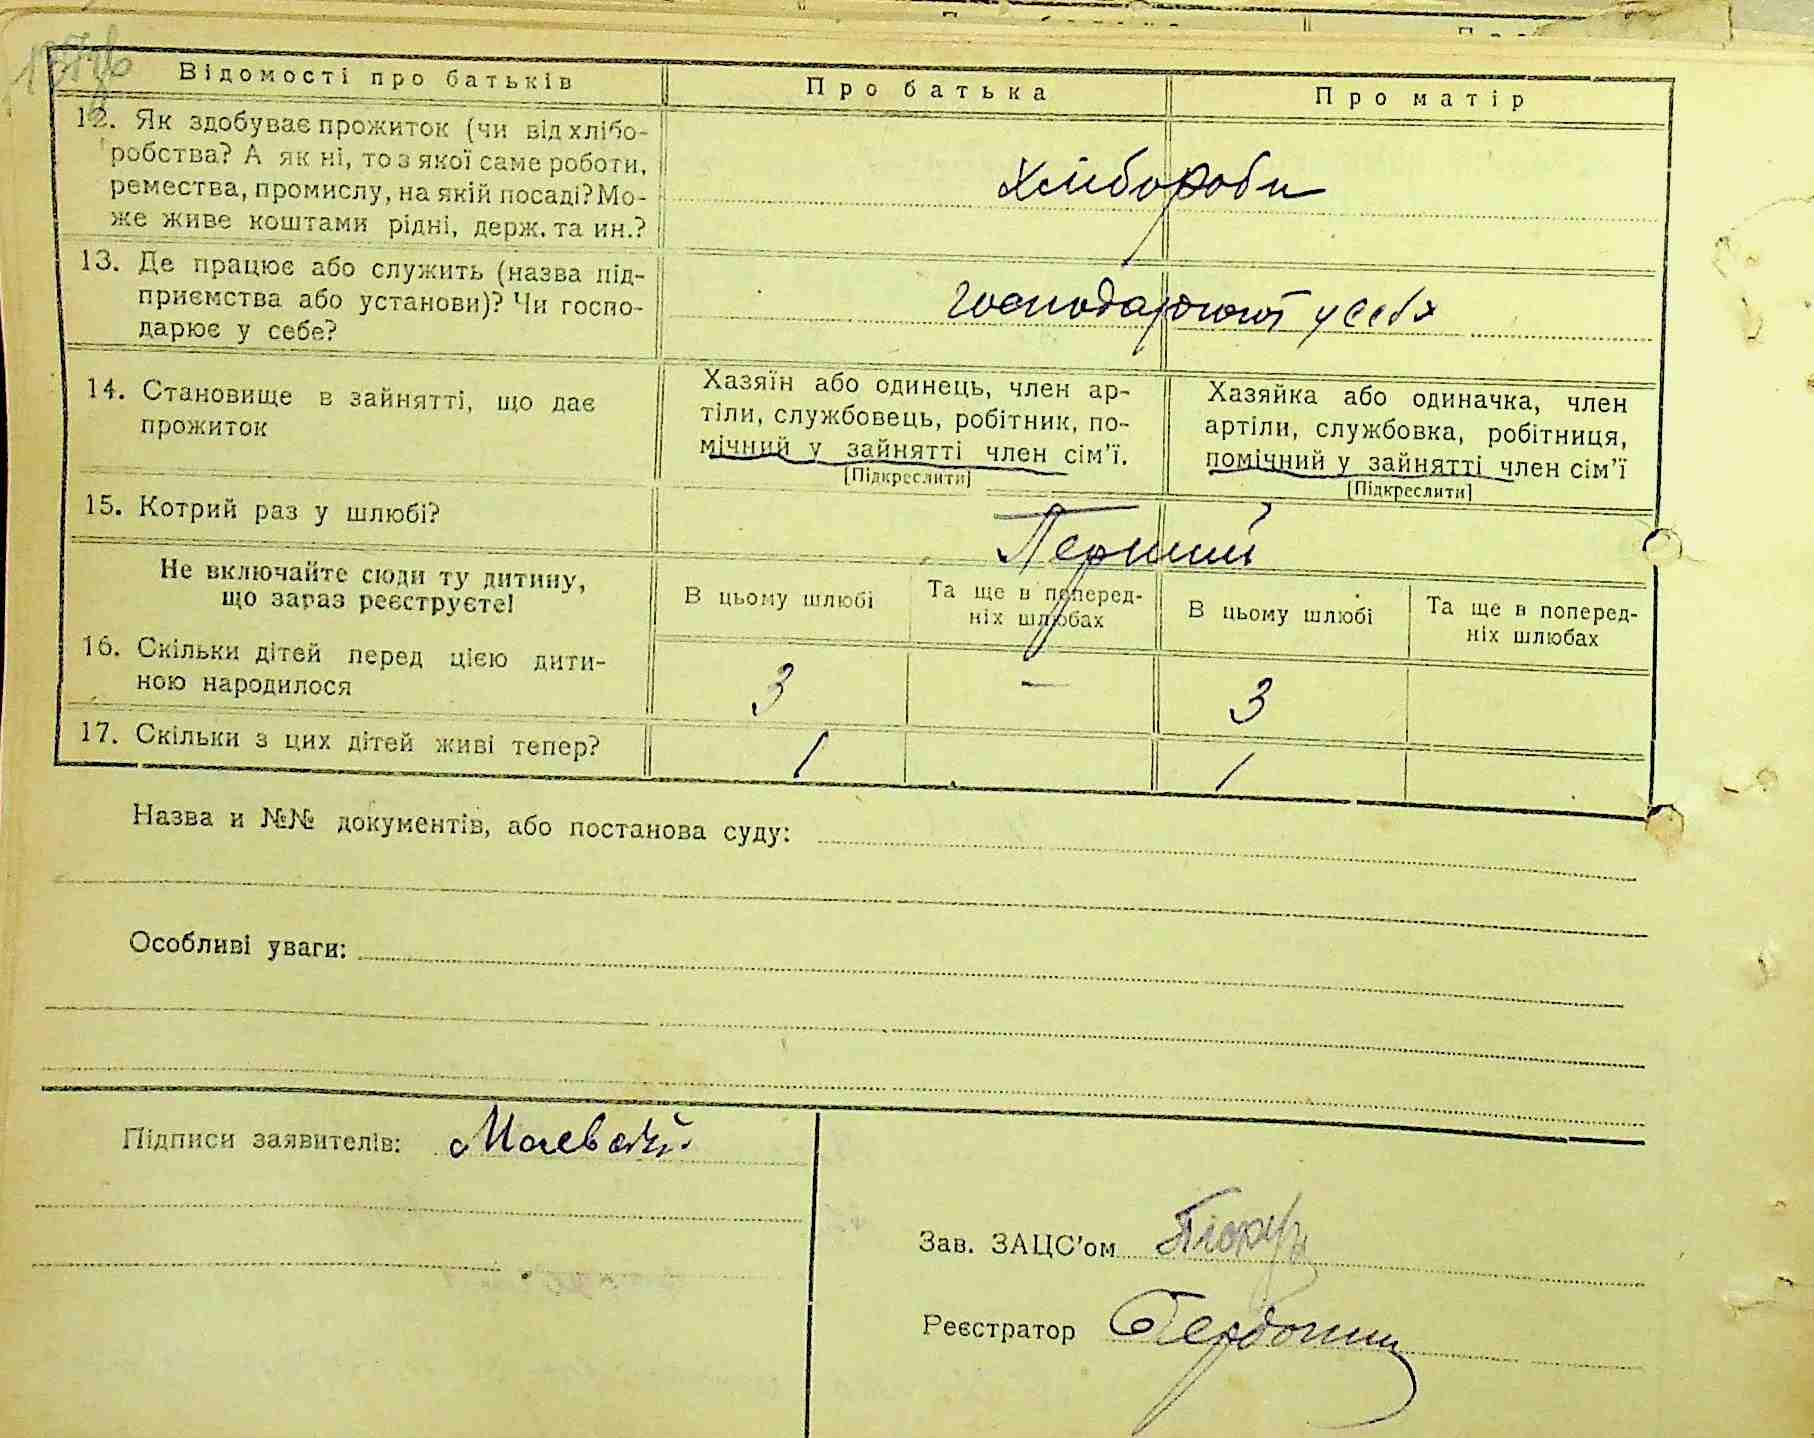 Відомості про батьків
Про батька
Про матір
12. Як здобуває прожиток (чи від хлібо-
робства? А як ні, то з якої саме роботи,
ремества, промислу, на якій посаді? Мо-
же живе коштами рідні, держ. та ин.?
Хлібороби
13. Де працює або служить (назва під-
приємства або установи)? Чи госпо-
дарює у себе?
господарюют у себя
14. Становище в зайнятті, що дає
прожиток
Хазяїн або одинець, член ар-
тіли, службовець, робітник, по-
мічний у зайнятті член сім'ї.
[Підкреслити]
Хазяйка або одиначка, член
артіли, службовка, робітниця,
помічний у зайнятті член сім'ї
[Підкреслити]
15. Котрий раз у шлюбі?
Перший
Не включайте сюди ту дитину,
що зараз реєструєте!
В цьому шлюбі
Та ще в поперед-
ніх шлюбах
В цьому шлюбі
Та ще в поперед-
ніх шлюбах
16. Скільки дітей перед цією дити-
ною народилося
3
—
3
17. Скільки з цих дітей живі тепер?
1
1
Назва и №№ документів, або постанова суду:
Особливі уваги:
Підписи заявителів:
Зав. ЗАЦС'ом
Реєстратор